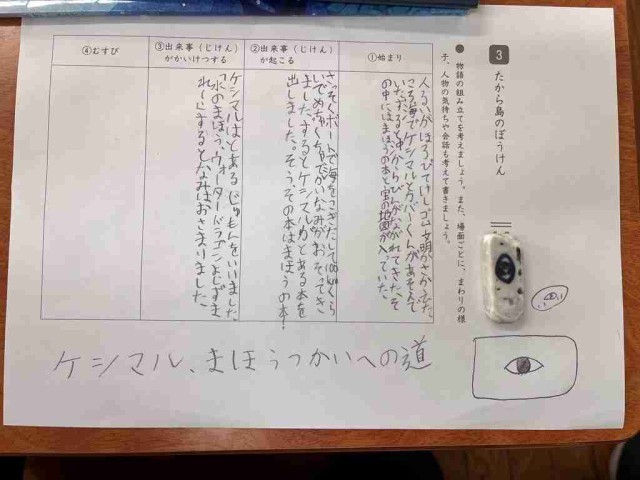 3
たから島のぼうけん
● 物語の組み立てを考えましょう。また、場面ごとに、まわりの様
子、人物の気持ちや会話も考えて書きましょう。
①始まり
人るいがほろびてけしゴム文明がさかえてた
ころ海でケシマルとカバーくんがあそんで
いた。すると中からびんがながれてきた。そ
の中にはまほうの本と宝の地図が入っていた。
②出来事(じけん)
が起こる
さっそくボートで海をこぎだして100kmくら
いでめちゃくちゃでかいなみがおそってき
ました。するとケシマルはとある本を
出しました。そう、その本はまほうの本!
③出来事(じけん)
がかいけつする
ケシマルはとあるじゅもんをいいました。
「水のまほう、ウォータードラゴンよしずま
れ～」するとなみはおさまりました。
④むすび
ケシマル、まほうつかいへの道